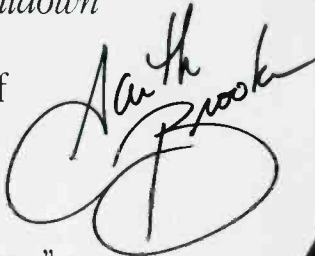 ntdown
of
Garth
Brooks
"